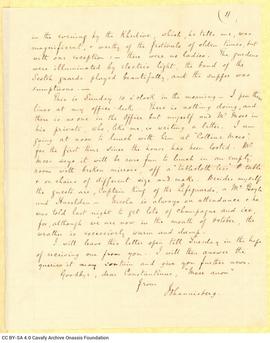 (11
in the evening by the Khedive, which, he tells me, was
magnificent, & worthy of the festivals of olden times, but
with one exception :— there were no ladies. The gardens
were illuminated by electric light, the band of the
Scotch guards played beautifully, and the supper was
sumptuous. —
This is Sunday 10 o'clock in the morning — I pen these
lines at my office desk. There is nothing doing, and
there is no one in the office but myself and Mr Moss in
his private, who like me, is writing a letter. I am
going at noon to lunch with him at
for the first time since the house has been looted. Mr
Moss says it will be rare fun to lunch in an empty
room with broken mirrors, off a "tablecloth-less" table
& on chairs of different size and make. Besides myself
the guests are, Captain King of the Lifeguards, & Mr Boyle
and Haselden — Nicola is always in attendance & he
was told last night to get lots of champagne and ice,
for, although we are now in the month of October, the
weather is excessively warm and damp.
I will leave this letter open till Tuesday in the hope of
receiving one from you. I will then answer the
queries it may contain and give you further news.
Goodbye, dear Constantine, "More anon"
From
Johannisberg.
CC BY-SA 4.0 Cavafy Archive Onassis Foundation